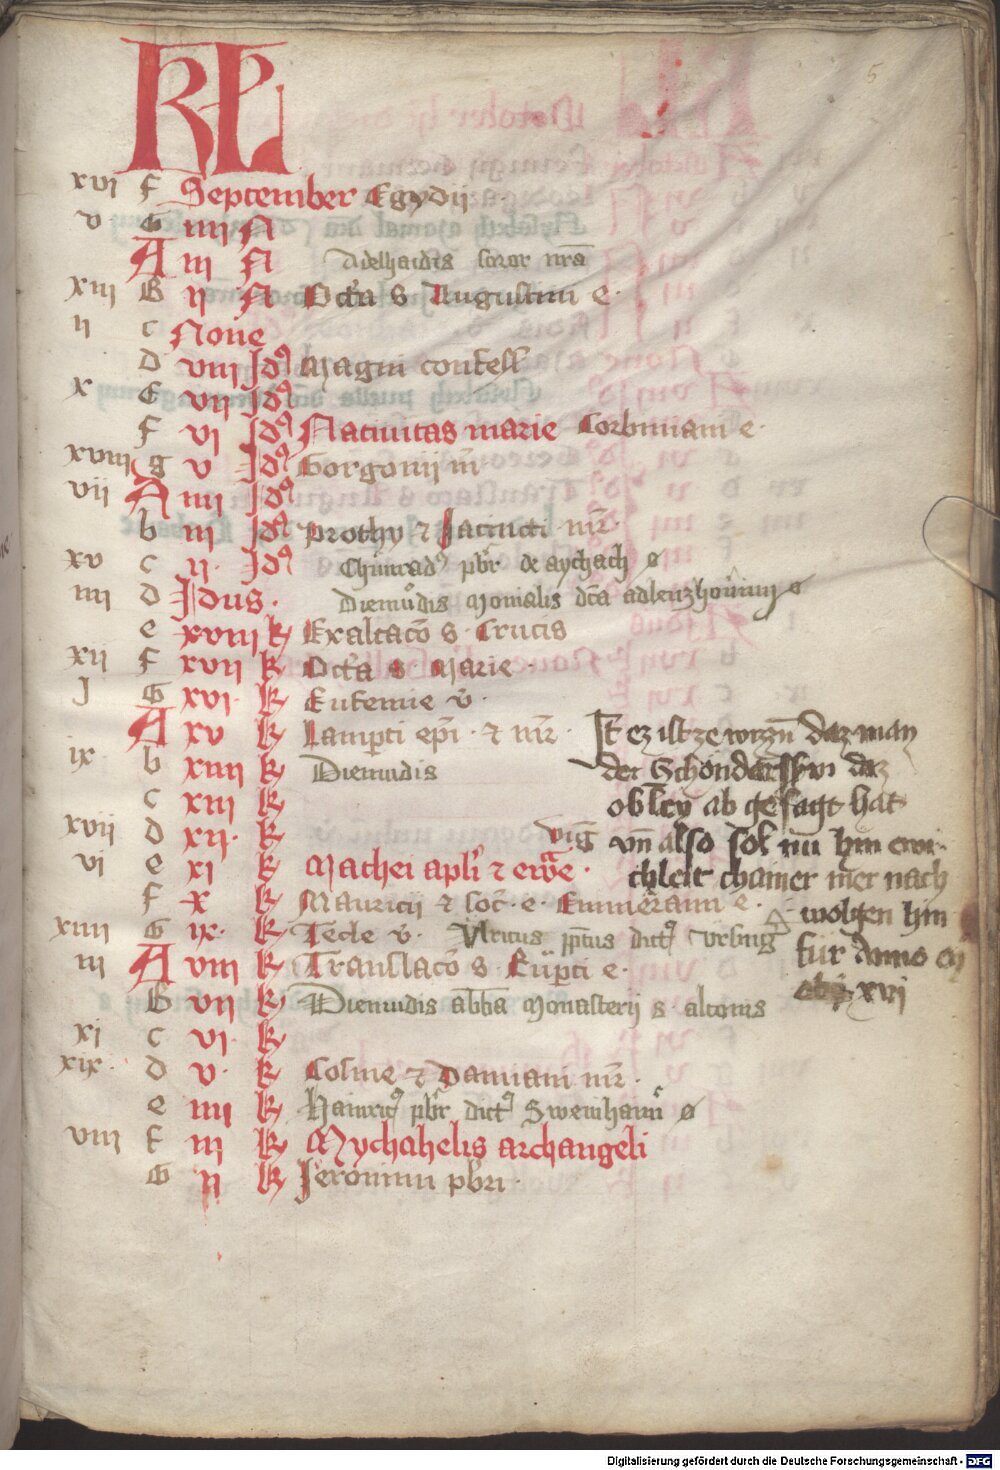 KL
5
xvi f September Egydii
v G iiii N
A iii N Adelhaidis soror nr̄a
xiii B ii N Oct̄a S Augustini e·
ii c None
d viii Id⁹ Magni confess
x E vii Id⁹
f vi Id⁹ Natiuitas marie Corbiniani e·
xviii g v Id⁹ Gorgonij m̄
vii A iiii Id⁹
b iii Id⁹ prothy ⁊ Jacincti mr̄
xv c ii· Id⁹ Chunrad⁹ pbr̄ de aychach
iiii d Idus· Diemůdis monialis dc̄a
e xviii k Exaltac̄o S· Crucis
xii f xvii k Oct̄a S Marie·
j G xvi· k Eufemie v̄·
A xv k Lamp̄ti ep̄i· ⁊ mr̄·
ix b xiiii k Diemudis
c xiii k
xvii d xii· k vig̃
vi e xi k Mathei apl̄i ⁊ ew̄e·
f x k Mauricij ⁊ soc̄· e· Emmerami e·
xiiii G ix· k Tecle v̄· Vlricus
iii A viii k Translac̄o S· Rup̄ti e·
B vii k Diemudis abb̄a Monasterij s altonis
xi c vi· k
xix· d v· k Cosme ⁊ Damiani mr̄·
e iiii k Hainric⁹ pbr̄ dict⁹
viii f iii k Mychahelis archangeli
G ii k Jeronimi pbr̄i·
It ez ist ze wizzn̄ daz man
der daz
obley ab gesagt hat
vn̄ also sol nu hin ewi
chleit chainer mer nach
volgen hin
für Anno
xvj
Digitalisierung gefördert durch die Deutsche Forschungsgemeinschaft - DFG